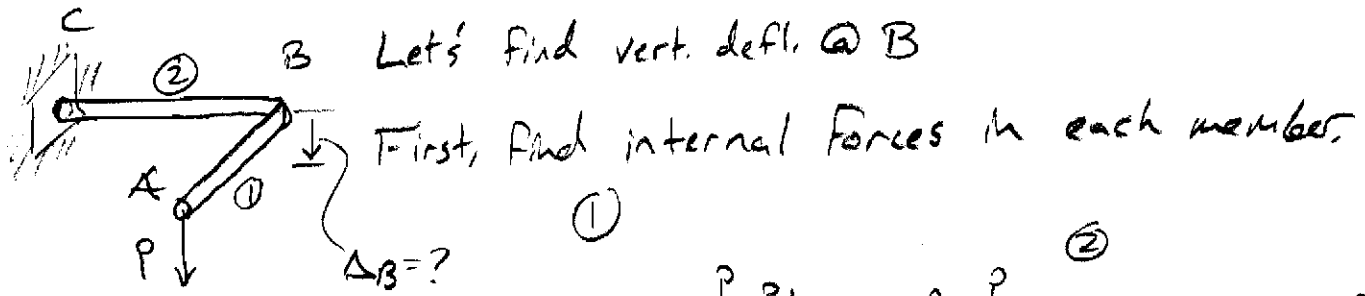 C
② B Let's find vert. defl. @ B
First, find internal forces in each member.
A ① ① ②
P ΔB=?
P P